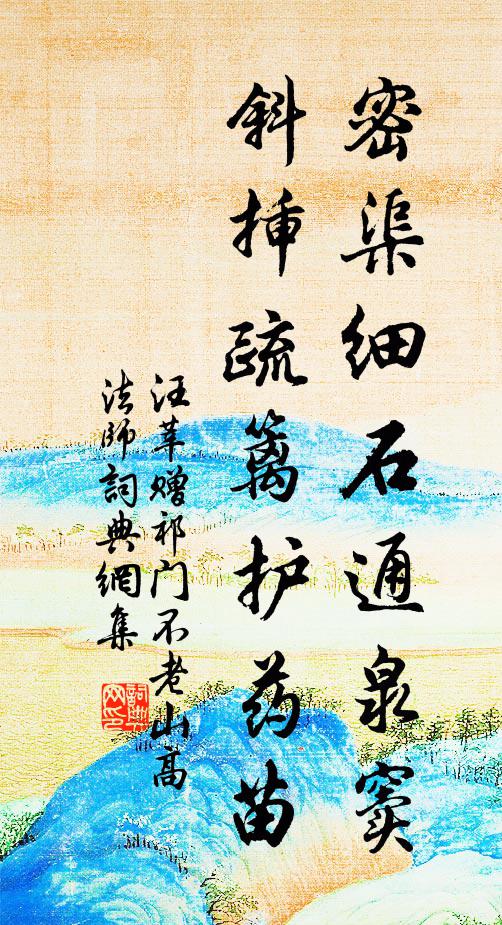 密渠细石通泉窦
斜挿疏篱护药苗
汪莘赠祁门不老山高
法师詞典網集